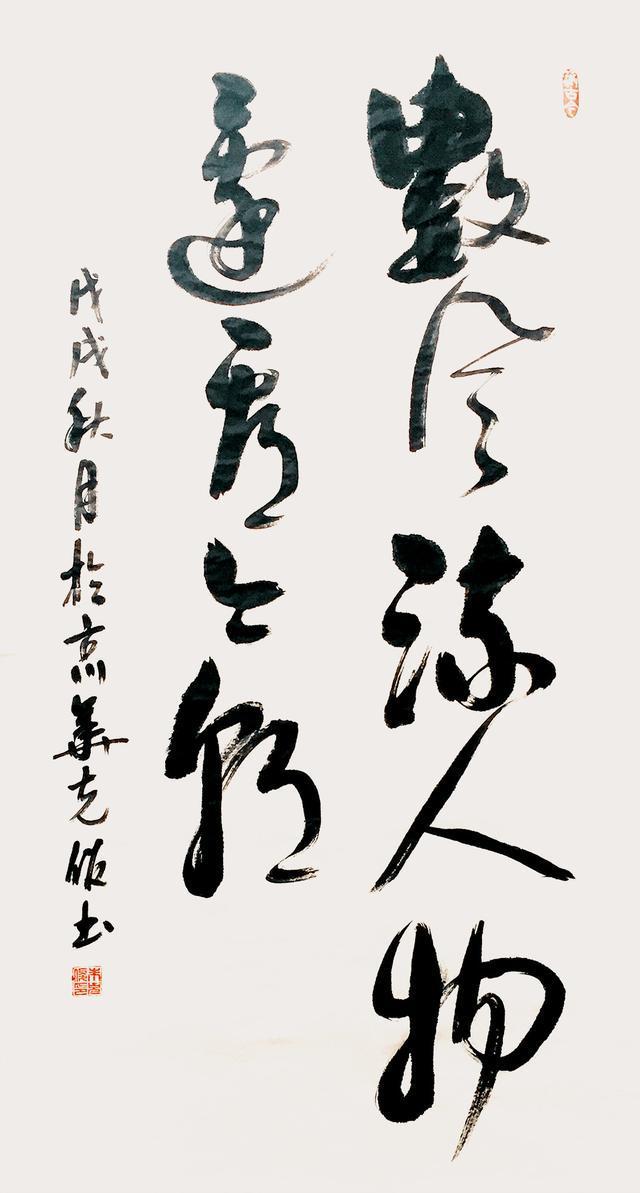 數风流人物
還看今朝
戊戌秋月於京華克俭书